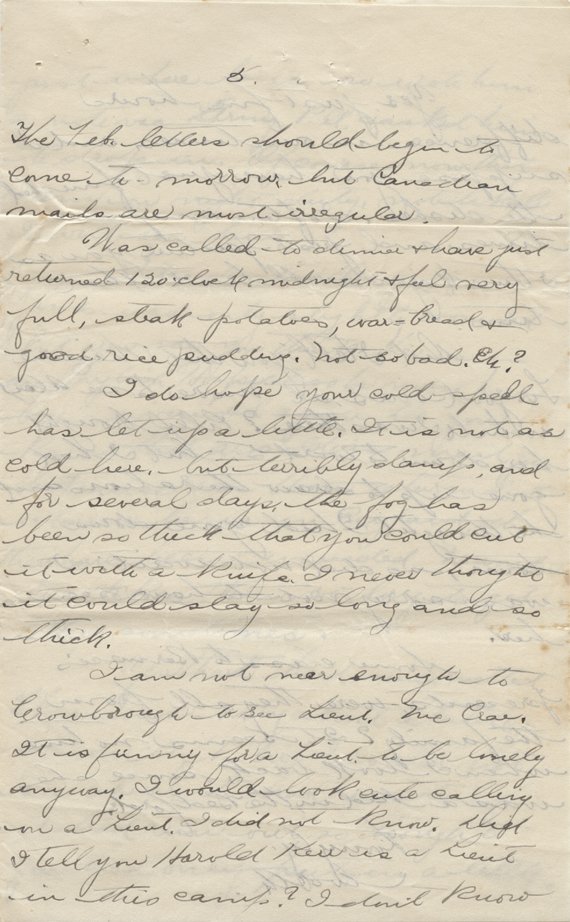 5.
The Feb. letters should begin to
come to morrow, but Canadian
mails are most irregular.
Was called to dinner & have just
returned 12 o:clock midnight & feel very
full, steak potatoes, war-bread &
good rice pudding. Not so bad. Eh.?
I do hope your cold spell
has let up a little. It is not as
cold here, but terribly damp, and
for several days, the fog has
been so thick that you could cut
it with a knife. I never thought
it could stay so long and so
thick.
I am not near enough to
Crowborough to see Lieut. Mc Crae.
It is funny for a Lieut. to be lonely
anyway. I would look cute calling
on a Lieut. I did not know. Did
I tell you Harold Kerr is a Lieut
in this camp? I don't know